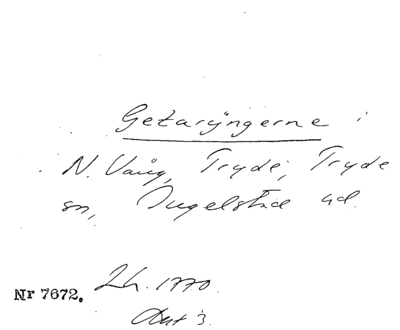 Getaryngerne i
N. Vång, Tryde, Tryde
sn, Ingelstad hd.
Lh. 1770.
Nr 7672.
Akt 3.